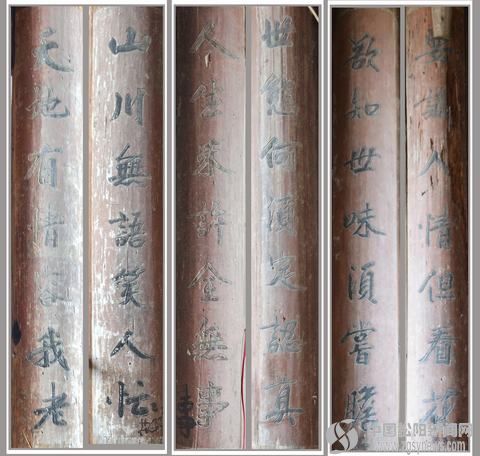 天地有情容我老
山川無語笑人忙
人生許全無事
世態何須定認真
欲知世味須嘗膽
識人情但看花
中国松阳新闻网
www.zgsynews.com